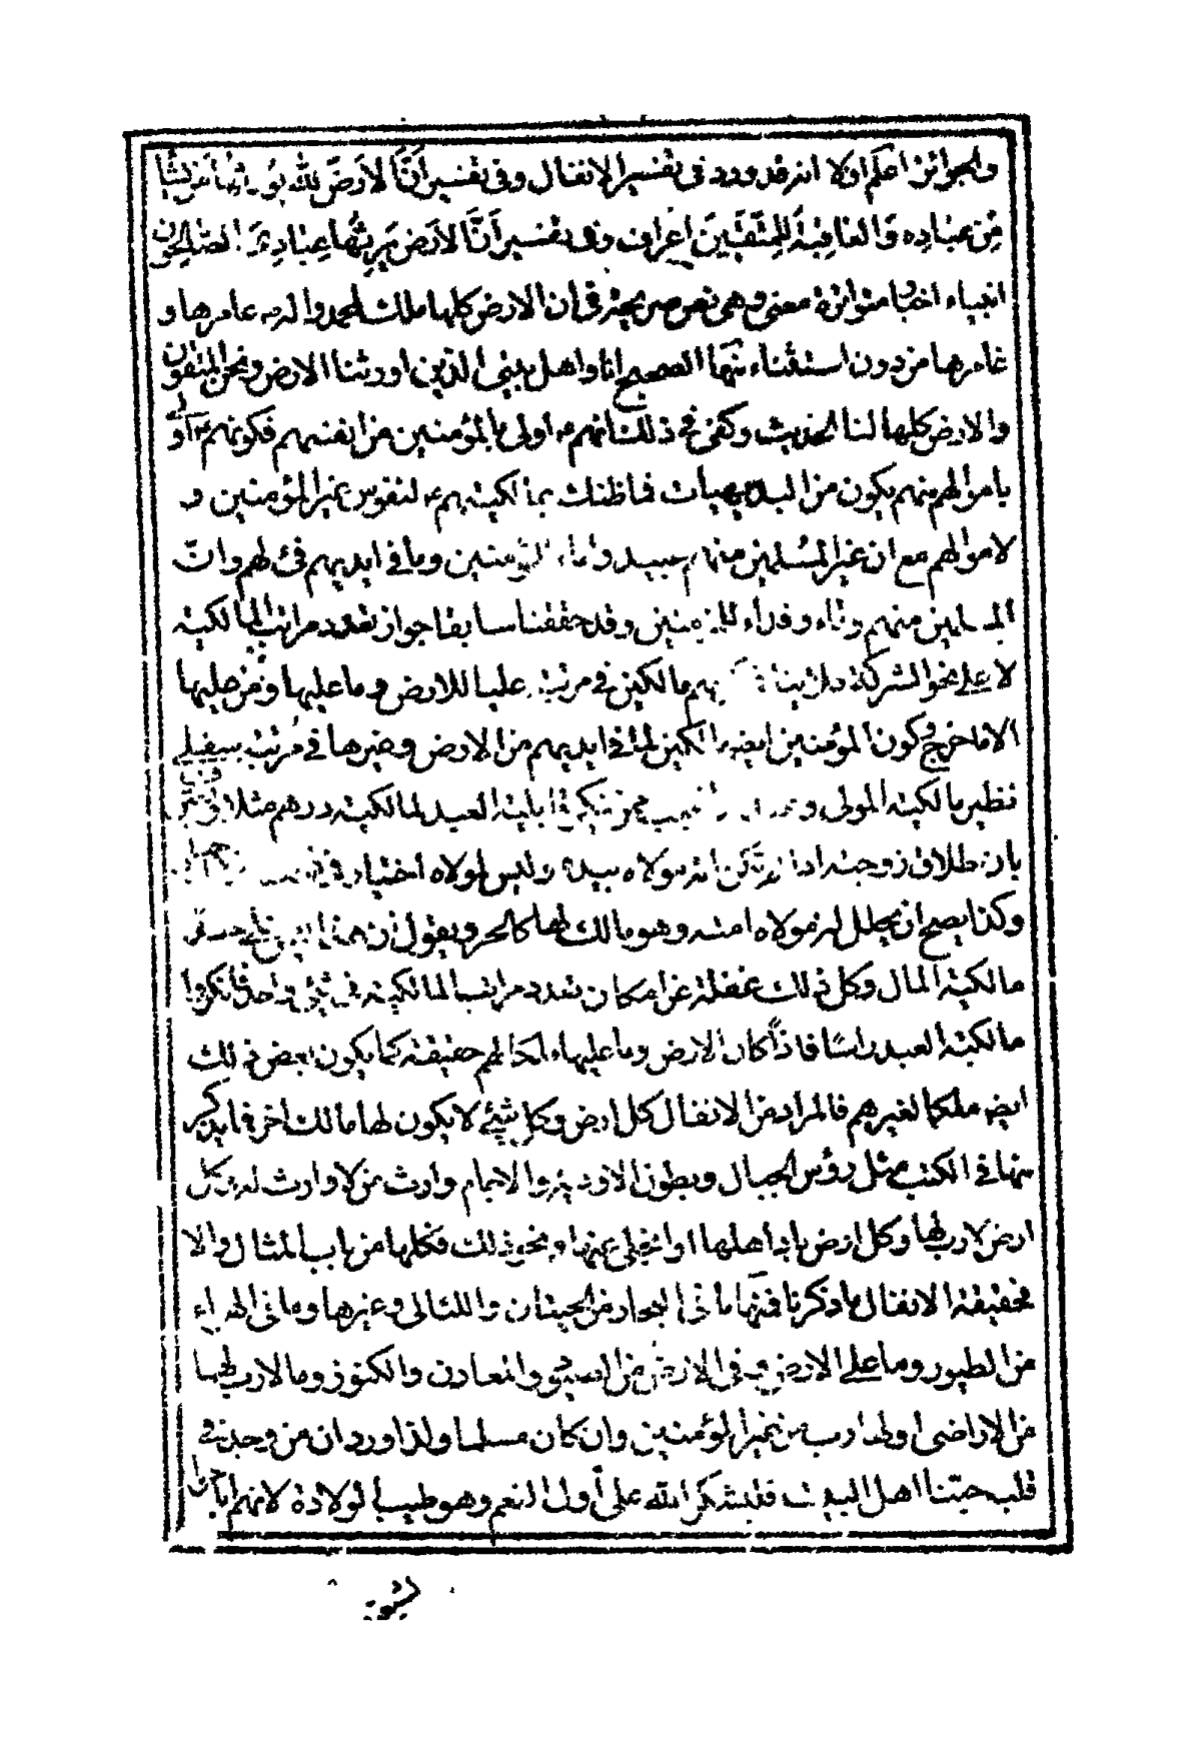 والجوائز اعلم اولا انه قد ورد فى تفسير الانفال وفى تفسير اَنَّ الاَرضَ للّه يُورثُها مَن يَشاءُ
مِن عِبادِه وَالعَاقِبَةُ لِلمُتَّقِينَ اعراف وفى تفسير اَنَّ الاَرضَ يَرِثُها عِبَادِىَ الصّالِحُون
انبياء اخبار متواترة معنى وهى نصوص صريحة فى ان الارض كلها ملك لمحمد واله عامرها و
غامرها من دون استثناء منها الصحيح انا واهل بيتى الذين اورثنا الارض ونحن المتقون
والارض كلها لنا الحديث وكفى فى ذلك انهم اولى بالمؤمنين من انفسهم فكونهم اولى
باموالهم منهم يكون من البديهيات فما ظنك بمالكيتهم لنفوس غير المؤمنين و
لاموالهم مع ان غير المسلمين منهم عبيد واماء للمؤمنين وما فى ايديهم فئ لهم وانّ
المسلمين منهم وقاء وفداء للمؤمنين وقد حققنا سابقا جواز تعدد مراتب المالكية
لا على نحو الشركة مالكين فى مرتبة عليا للارض وما عليها ومن عليها
الا ما خرج وكون المؤمنين ايضه مالكين لما فى ايديهم من الارض وغيرها فى مرتبة سفلى
نظير مالكية المولى و العبد لمالكية درهم مثلا
بان طلاق زوجته اذا لم تكن امة مولاه بيده وليس لمولاه اختيار فى
وكذا يصح ان يحلل له مولاه امته وهو مالك لها كالحر ويقول ان هذا
مالكية المال وكل ذلك غفلة عن امكان تعدد مراتب المالكية فى شئ واحد فانكروا
مالكية العبد راسًا فاذًا كان الارض وما عليها ملكا لهم حقيقة كما يكون بعض ذلك
ايضه ملكا لغيرهم فالمراد من الانفال كل ارض وكل شئ لا يكون لها مالك اخر فما يذكر
منها فى الكتب مثل رؤس الجبال وبطون الاودية والاجام وارث من لا وارث له وكل
ارض لا رب لها وكل ارض باد اهلها او انجلى عنها ونحو ذلك فكلها من باب المثال والا
فحقيقة الانفال ما ذكرنا فمنها ما فى البحار من الحيتان واللئالى وغيرها وما فى الهواء
من الطيور وما على الارض وفى الارض من والمعادن والكنوز وما لا رب لها
من الاراضى او لها رب من غير المؤمنين وان كان مسلما ولذا ورد ان من وجد فى
قلبه حبّنا اهل البيت فليشكر الله على اول النعم وهو طيب الولادة لانهم اباحوا